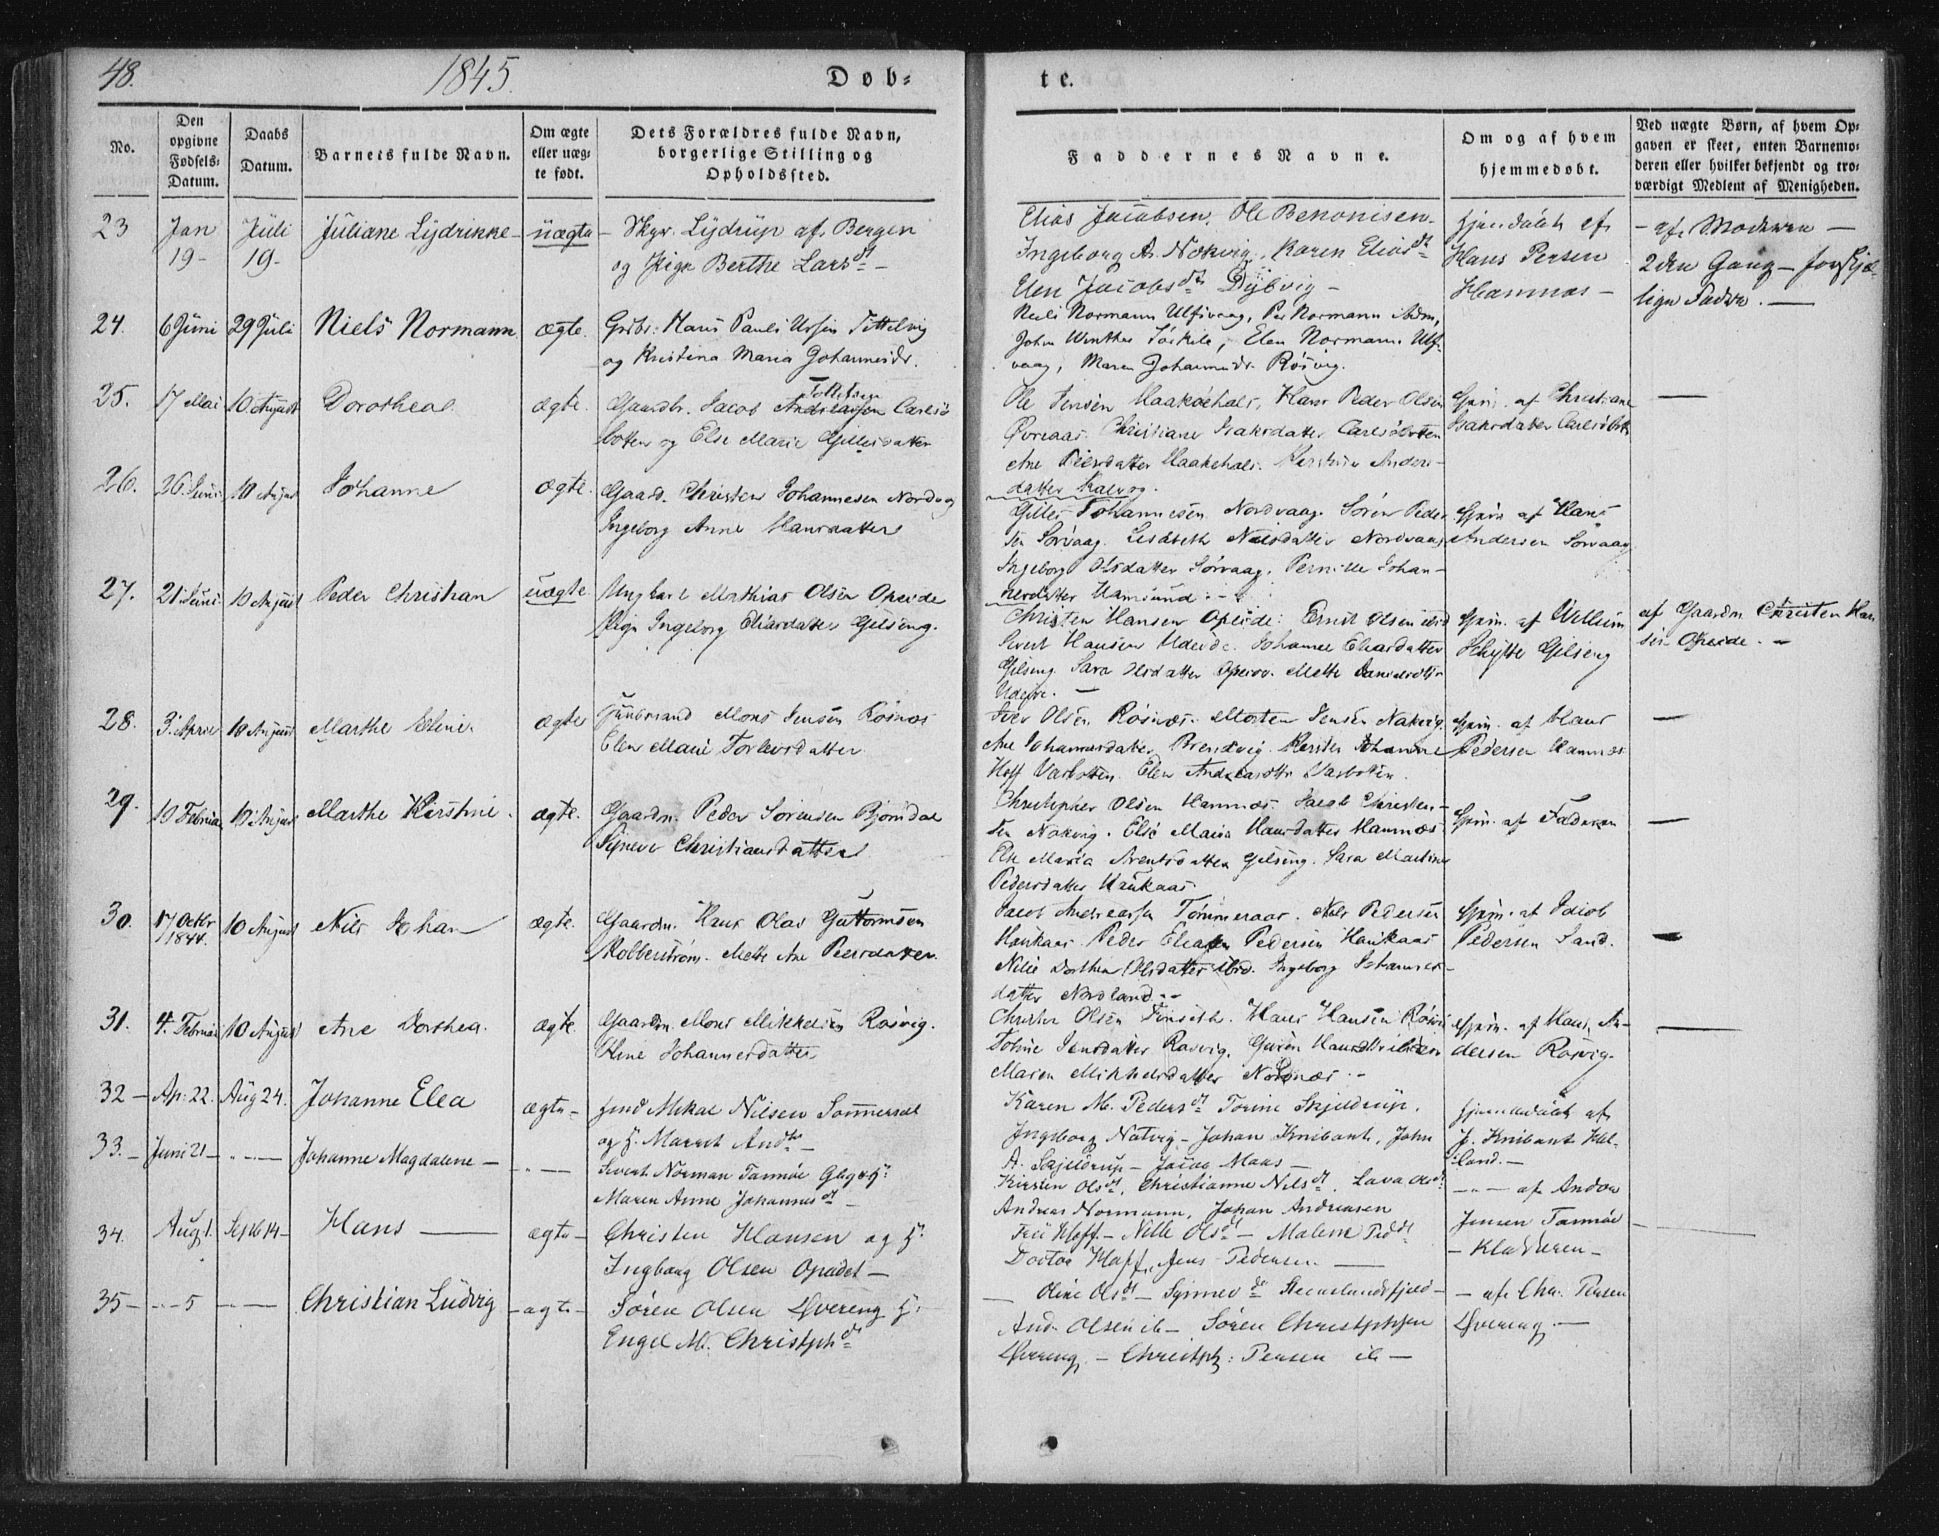 48.
1845.
Døb-
te.
No.
Den opgivne Fødsels-Datum.
Daabs Datum.
Barnets fulde Navn.
Om ægte eller uæg-te født.
Dets Forældres fulde Navn, borgerlige Stilling og Opholdssted.
Faddernes Navne.
Om og af hvem hjemmedøbt.
Ved uægte Børn, af hvem Op-gaven er skeet, enten Barnemo-deren eller hvilket bekjendt og tro-værdigt Medlem af Menigheden.
23 Jan 19- Juli 19- Juliane Lydrikke- uægte - Lydrup af Bergen
og Pige Berthe Larsdt -
Elias Jacobsen, Ole Benonisen.
Ingeborg A. Nækvig, Karen Eliasdt
Elen Jacobsdt Dybvig -
Hans Persen
Hamnæs -
- af Moderen -
2den Gang -
24. 6 Juni 29 Juli Niels Normann ægte. Grdbr: Hans Pauli Ursin Tittelvig
og Kristina Maria Johannesdr.
Neils Normann Ulfsvaag, Per Normann ibdm,
John Winther, Elen Normann Ulf-
vaag, Maren Johannesdr Røsvig.
25. 17 Mai 10 August Dorothea ægte. Gaardbr. Jacob Tollefsen Carlsø
botten og Else Marie Gillesdatter
Ole Jensen Haakøehals, Hans Peder Olsen
Øvreaas. Christiane Isaksdatter Carlsøbotten
Ane Peersdatter Haakehals. Anders-
datter
Hjem. af Christiane
Isaksdatter Carlsøbot
26. 26 Juni 10 August Johanne ægte. Gaard. Christen Johannesen Nordvog
Ingeborg Anne Hansdatter
Gilles Johannesen Nordvaag. Søren Peder
sen Sørvaag. Lisabeth Nilsdatter Nordvaag
Ingeborg Olsdatter Sørvaag. Pernille Johan-
nesdatter Hamsund. -
Hjem. af Hans
Andersen Sørvaag
27. 21 Juni 10 August Peder Christian uægte. Ungkarl Mathias Olsen Opeide
Pige Ingeborg Eliasdatter Gilseng.
Christen Hansen Opeide: Ernst Olsen ibid
Sivert Hansen. Johanne Eliasdatter
Gilseng. Sara Olsdatter. Mette Danielsdtr
Hjem. af Wellum
Schytte Gilseng
af Gaardm Christen Han
sen Opeide. -
28. 3 April 10 August Marthe Eline. ægte Huusmand Mons Jensen Røsnæs
Elen Marie Torlevsdatter
Iver Olsen Røsnæs. Morten Jensen Nakvig.
Ane Johannesdatter Brendvig. Kersten Johanne
Hoff Varbotten. Elen Andreasdtr Varboten.
Hjem. af Hans
Pedersen Hamnæs
29. 10 Februar 10 August Marthe Kirstine. ægte. Gaardm. Peder Sørensen Bjørndal
Synever Christiansdatter
Christopher Olsen Hamnæs. Jacob Christen-
sen Nakvig. Else Maria Hansdatter Hamnæs
Else Maria Arentsdatter Gilseng. Sara Martine
Pedersdatter Haukaas.
Hjem. af Faderen
30. 17 Octbr 1844. 10 August Nils Johan ægte. Gaardm. Hans Olai Guttormsen
Robberstrøm. Mette Ane Peersdatter.
Jacob Andreassen Tømmeraas. Nils Pedersen
Haukaas. Peder Eliasen Pedersen Haukaas
Nilie Dorthea Olsdatter ibid. Ingeborg Johannes-
datter Nordland. -
Hjem. af Jacob
Pedersen Sand.
31. 4. Februar 10 August Ane Dorthea. ægte Gaardm. Mons Mikkelsen Røsvig.
Eline Johannesdatter
Christen Olsen Finseth. Hans Hansen Røsvi
Toline Jensdatter Rosvig. Guren Hansdtr ibiden
Maren Mikkelsdatter -
Hjem. af Hans An-
dersen Rosvig.
32 - Ap: 22. Aug 24. Johanne Elea ægte - Mikal Nilsen Sommersæt
og H. Marrit Anddtr -
Karen M. Pedersdt Torine Skjeldrup,
Ingeborg Natvig - Johan Knibant, John
A. Skjeldrup - Jacob Maas -
J. Knibant Hel-
land. -
33. - Juni 21 - " - Johanne Magdalene - " - Sivert Norman Tannøe Gbg og H:
Maren Anne Johannesdt -
Kirsten Olsdt, Christianne Nilsdt, Lava Olsdt
Andreas Normann, Johan Andreasen
- " - af Andon
Jensen Tannøe
34. Aug 1. Septb 14 - Hans ægte - Christen Hansen og H:
Ingborg Olsen Opeidet -
Frü Hoff - Nille Olsdt - Malene Peddt
Doctor Hoff, Jens Pedersen
- Kladderen -
35 - " 5 " - Christian Ludvig - ægte - Søren Olsen Qvereng H:
Engel M. Christphdt
Oline Olsdt - Synnev do Steenslandsfjeld -
And. Olsen ib - Søren Christphsen
Qvereng. - Christph: Pensen ib -
- af Chr. Pensen
Qvereng -